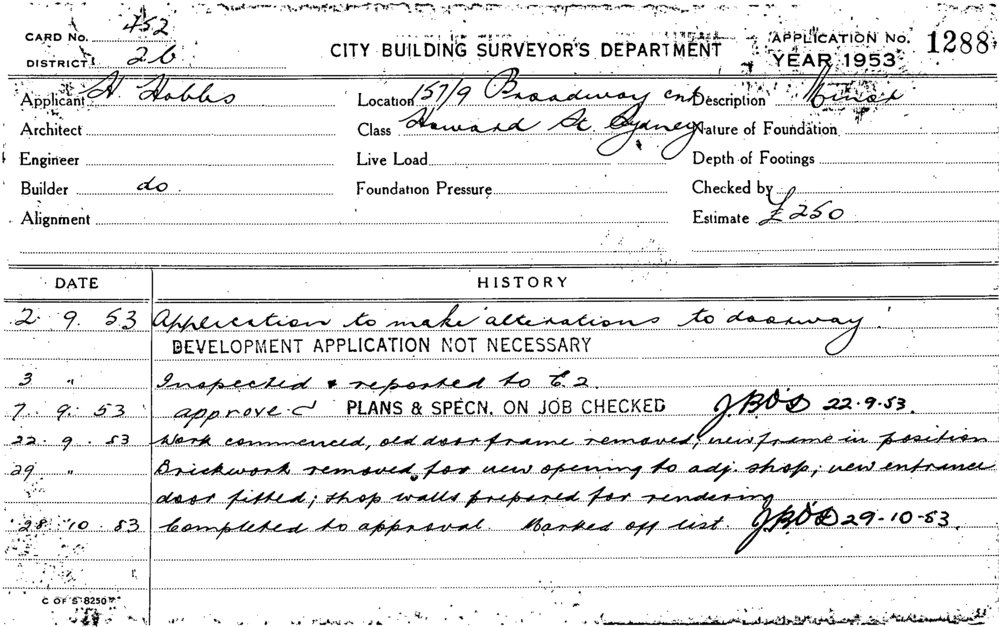 CARD No. 452
DISTRICT 26
CITY BUILDING SURVEYOR'S DEPARTMENT
APPLICATION No. 1288
YEAR 1953
Applicant H Hobbs
Location 157/9 Broadway cnr
Description Minor
Architect
Class Howard St. Sydney
Nature of Foundation
Engineer
Live Load
Depth of Footings
Builder do
Foundation Pressure
Checked by
Alignment
Estimate £250
DATE HISTORY
2. 9. 53 Application to make alterations to doorway.
DEVELOPMENT APPLICATION NOT NECESSARY
3 " Inspected & reported to E.2.
7. 9. 53 approved PLANS & SPECN. ON JOB CHECKED J.B.O'S 22.9.53.
22. 9. 53 Work commenced, old door frame removed, new frame in position
29 " Brickwork removed for new opening to adj. shop; new entrance
door fitted; shop walls prepared for rendering
28. 10. 53 Completed to approval. Marked off list. J.B.O'S 29-10-53.
C OF S 8250